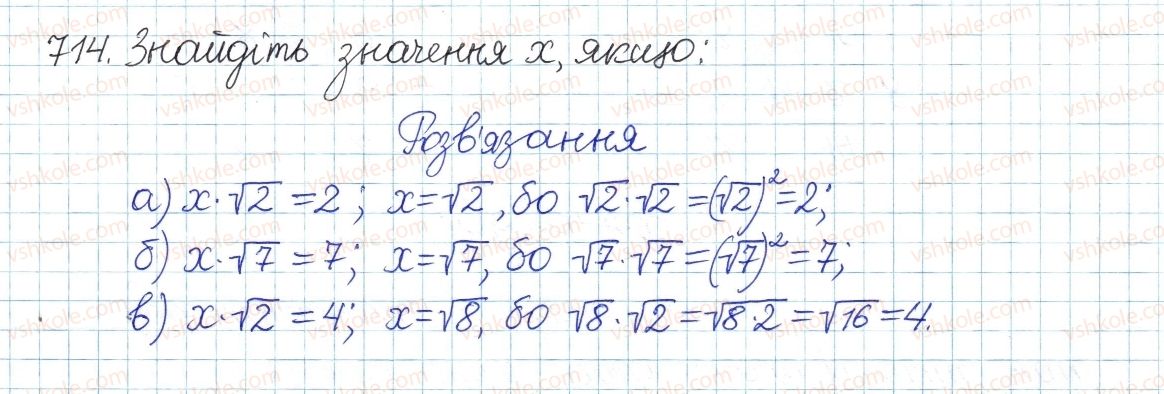 714. Знайдіть значення x, якщо:
Розв'язання
а) x·√2 = 2; x = √2, бо √2·√2 = (√2)² = 2;
б) x·√7 = 7; x = √7, бо √7·√7 = (√7)² = 7;
в) x·√2 = 4; x = √8, бо √8·√2 = √8·2 = √16 = 4.